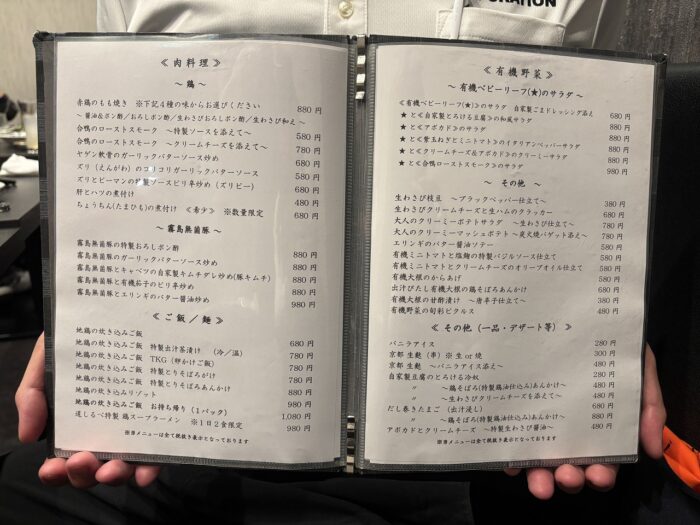 ORATION
≪ 肉料理 ≫
～ 鶏 ～
赤鶏のもも焼き ※下記4種の味からお選びください 880 円
～ 醤油&ポン酢／おろしポン酢／生わさびおろしポン酢／生わさび和え ～
合鴨のローストスモーク ～特製ソースを添えて～ 580 円
合鴨のローストスモーク ～クリームチーズを添えて～ 780 円
ヤゲン軟骨のガーリックバターソース炒め 680 円
ズリ（えんがわ）のコリコリガーリックバターソース 580 円
ズリとピーマンの特製ソースピリ辛炒め（ズリピー） 680 円
肝とハツの煮付け 480 円
ちょうちん(たまひも)の煮付け ≪希少≫ ※数量限定 680 円
～ 霧島無菌豚 ～
霧島無菌豚の特製おろしポン酢 880 円
霧島無菌豚のガーリックバターソース炒め 880 円
霧島無菌豚とキャベツの自家製キムチダレ炒め(豚キムチ) 880 円
霧島無菌豚と有機茄子のピリ辛炒め 880 円
霧島無菌豚とエリンギのバター醤油炒め 980 円
≪ ご飯／麺 ≫
地鶏の炊き込みご飯 680 円
地鶏の炊き込みご飯 特製出汁茶漬け （冷／温） 780 円
地鶏の炊き込みご飯 TKG（卵かけご飯） 780 円
地鶏の炊き込みご飯 特製とりそぼろがけ 780 円
地鶏の炊き込みご飯 特製とりそぼろあんかけ 880 円
地鶏の炊き込みリゾット 880 円
地鶏の炊き込みご飯 お持ち帰り（1パック） 1,080 円
道しるべ特製 鶏スープラーメン ※1日2食限定 980 円
※当メニューは全て税抜き表示となっております
≪ 有機野菜 ≫
～ 有機ベビーリーフ(★)のサラダ ～
≪有機ベビーリーフ(★)≫のサラダ 自家製ごまドレッシング添え 680 円
★ と≪自家製とろける豆腐≫の和風サラダ 880 円
★ と≪アボカド≫のサラダ 880 円
★ と≪紫玉ねぎとミニトマト≫のイタリアンペッパーサラダ 880 円
★ と≪クリームチーズ&アボカド≫のクリーミーサラダ 880 円
★ と≪合鴨ローストスモーク≫のサラダ 980 円
～ その他 ～
生わさび枝豆 ～ブラックペッパー仕立て～ 380 円
生わさびクリームチーズと生ハムのクラッカー 680 円
大人のクリーミーポテトサラダ ～生わさび仕立て～ 780 円
大人のクリーミーマッシュポテト～炭火焼バゲット添え～ 780 円
エリンギのバター醤油ソテー 580 円
有機ミニトマトと塩麹の特製バジルソース仕立て 580 円
有機ミニトマトとクリームチーズのオリーブオイル仕立て 580 円
有機大根のからあげ 580 円
出汁びたし有機大根の鶏そぼろあんかけ 680 円
有機大根の甘酢漬け ～唐辛子仕立て～ 380 円
有機野菜の旬彩ピクルス 480 円
≪ その他（一品・デザート等） ≫
バニラアイス 280 円
京都 生麩（串）※ 生 or 焼 300 円
京都 生麩 ～バニラアイス添え～ 480 円
自家製豆腐のとろける冷奴 480 円
〃 ～鶏そぼろ(特製鶏油仕込み)あんかけ～ 480 円
〃 ～生わさびあんかけ～ 480 円
だし巻きたまご（出汁浸し） 680 円
〃 ～鶏そぼろ(特製鶏油仕込み)あんかけ～ 880 円
アボカドとクリームチーズ ～特製生わさび醤油～ 480 円
※当メニューは全て税抜き表示となっております